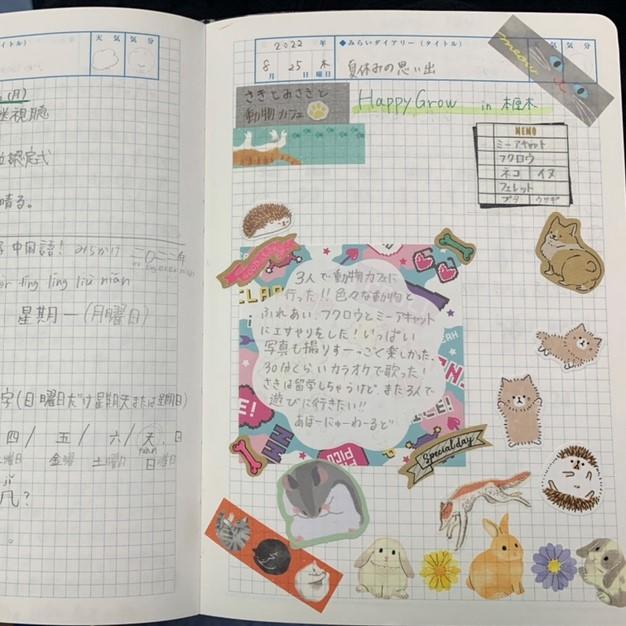 イトル)
天 気
気 分
(月)
視聴
認定式
晴る。
中国語!
ling liù nián
星期一 (月曜日)
字(日曜日だけ星期天または星期日)
四/ 五/ 六/ 天,日
木曜日 金曜 土曜 日曜日
几?
2022 年
8月 25日 木曜日
◆みらいダイアリー (タイトル)
夏休みの思い出
気 気 分
meow
さきとみさきと
動物カフェ
HappyGrow in 本厚木
MEMO
ミーアキャット
フクロウ
ネコ イヌ
フェレット
ブタ ウサギ
3人で動物カフェに
行った!!色々な動物と
ふれあい、フクロウとミーアキャット
にエサやりをした!いっぱい
写真も撮りすーっごく楽しかった。
30分くらいカラオケで歌った!
さきは留学しちゃうけど、また3人で
遊びに行きたい!!
あほーにゅーわーるど
YEAH
MM
PICO
Special day